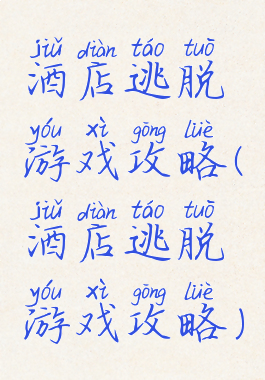 jiǔ diàn táo tuō
酒店逃脱
yóu xì gōng lüè
游戏攻略(
jiǔ diàn táo tuō
酒店逃脱
yóu xì gōng lüè
游戏攻略)